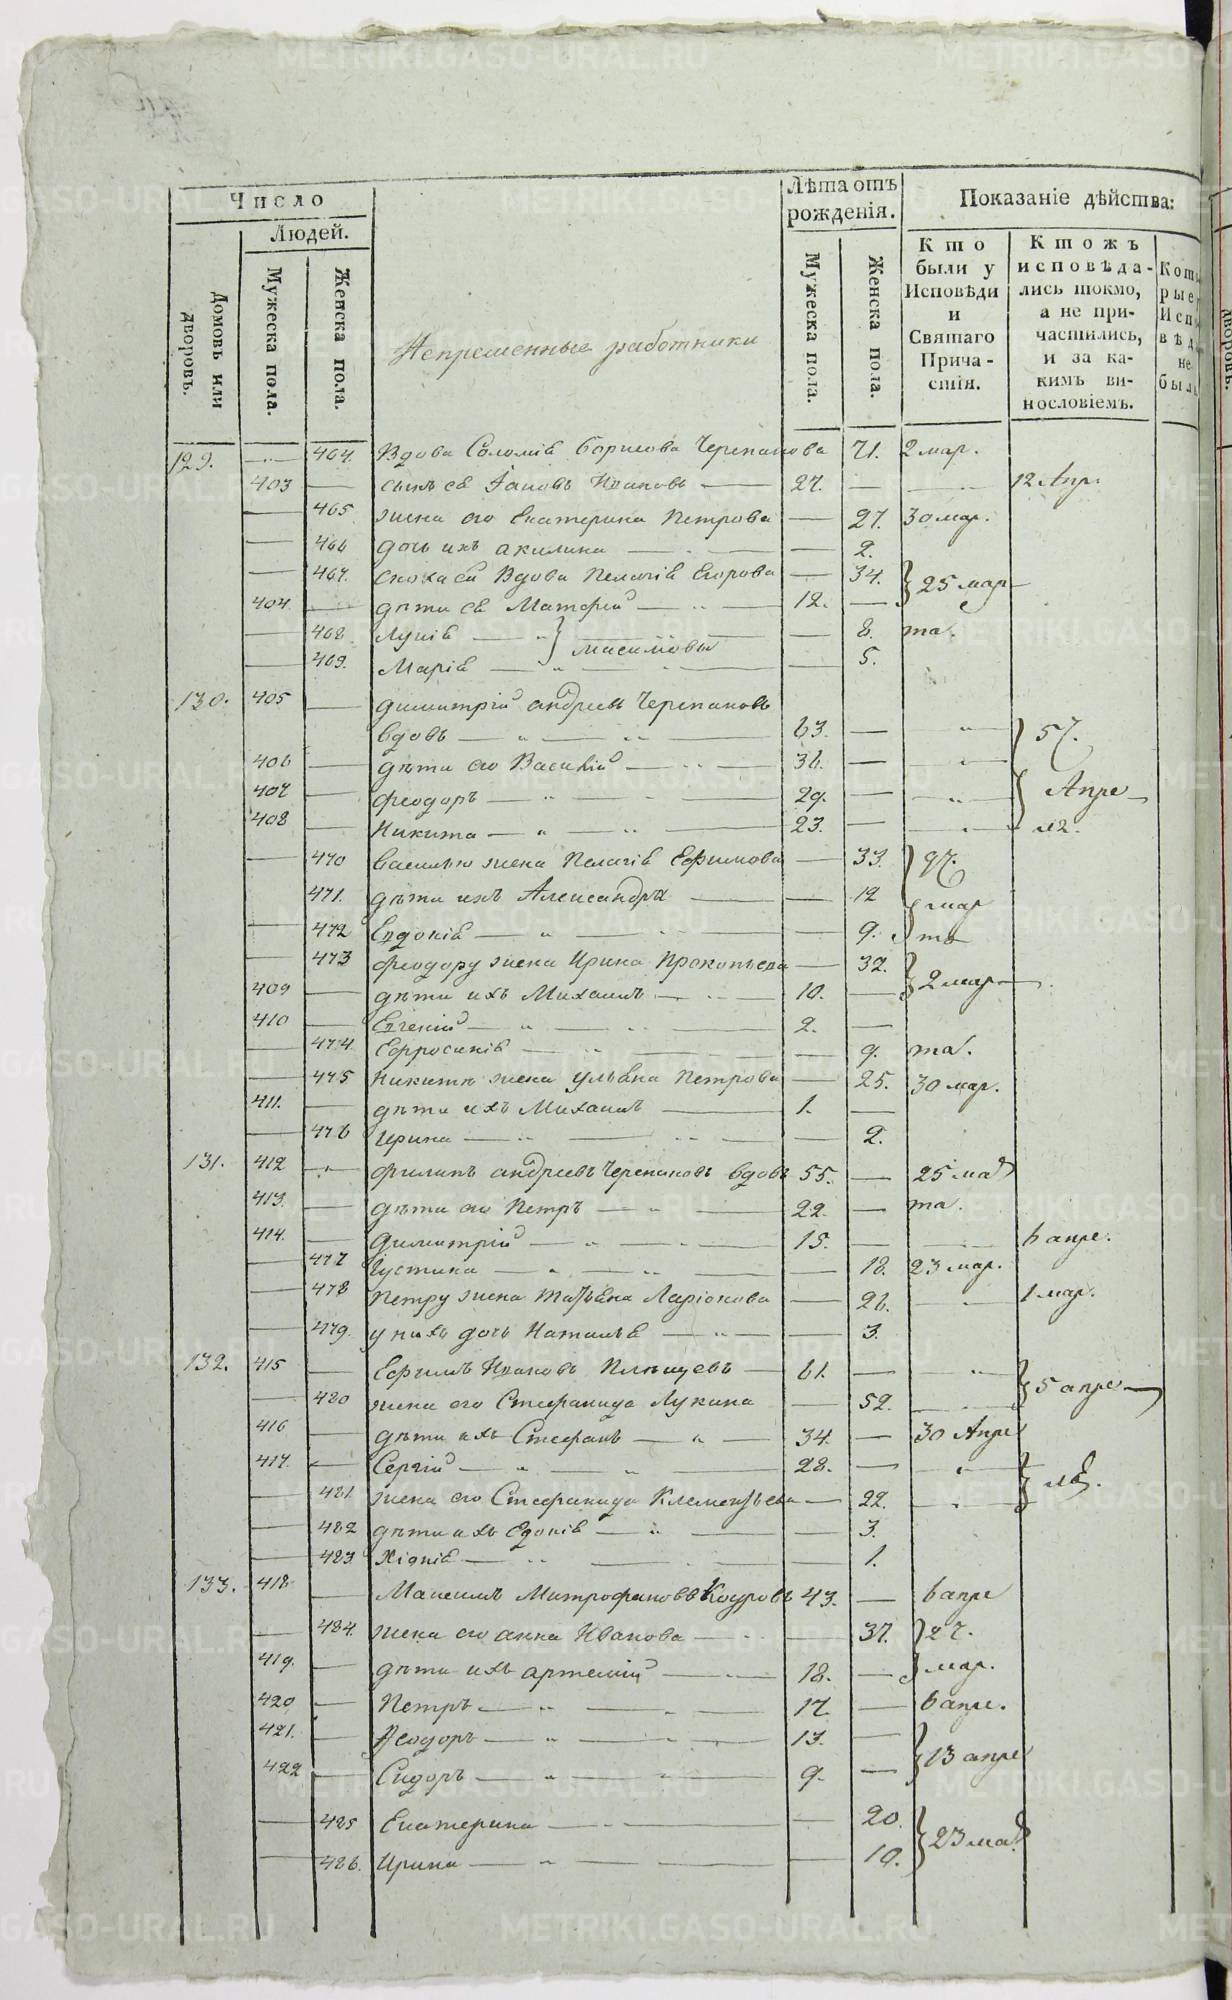 METRIKI.GASO-URAL.RU
Число
Людей.
Домовъ или дворовъ.
Мужеска пола.
Женска пола.
Непременные работники
Лѣта отъ рожденія.
Мужеска пола.
Женска пола.
Показаніе дѣйства:
Кто были у Исповѣди и Святаго Причастія.
Ктожъ исповѣдались токмо, а не причастились, и за какимъ винословіемъ.
129. 464. Вдова Соломія Борисова Черепанова 71. 2 мар.
403 сынъ ея Іаковъ Ивановъ 27. 12 Апр.
465 жена его Екатерина Петрова 27. 30 мар.
466 дочь ихъ Акилина 2.
467. сноха ея Вдова Пелагія Егорова 34. 25 мар
404. дѣти ея Матфей 12.
468 Лукія 8. та.
469. Марія 5.
130. 405 Димитрій Андреевъ Черепановъ
вдовъ 63. 5
406 дѣти его Василій 36.
407 Феодоръ 29. Апре
408 Никита 23. ля.
470 Василью жена Пелагія Ефимова 33. 9
471. дѣти ихъ Александра 12 мар
472 Евдокія 9. та
473 Феодору жена Ирина Прокопьева 32. 2 мар
409 дѣти ихъ Михаилъ 10.
410 Евгеній 2.
474. Ефросинія 9. та.
475 Никитѣ жена Ульяна Петрова 25. 30 мар.
411. дѣти ихъ Михаилъ 1.
476 Ирина 2.
131. 412 Филипъ Андреевъ Черепановъ вдовъ 55. 25 мар
413. дѣти его Петръ 22. та.
414. Димитрій 15. 6 апре.
477 Густина 18. 23 мар.
478 Петру жена Татьяна Ларіонова 26. 1 мар.
479. у нихъ дочь Наталья 3.
132. 415 Ефимъ Ивановъ Плѣшцевъ 61. 5 апре
480 жена его Стефанида Лукина 52.
416 дѣти ихъ Стефанъ 34. 30 Апре
417. Сергій 28. ля.
481 жена его Стефанида Клементьева 22.
482 дѣти ихъ Едокія 3.
483 Хіонія 1.
133. 418 Максимъ Митрофановъ Коуровъ 43. 6 апре
484. жена его Анна Иванова 37. 27.
419. дѣти ихъ Артемій 18. мар.
420 Петръ 17. 6 апре.
421. Феодоръ 13. 13 апре
422 Сидоръ 9.
485 Екатерина 20. 23 мар.
486. Ирина 10.